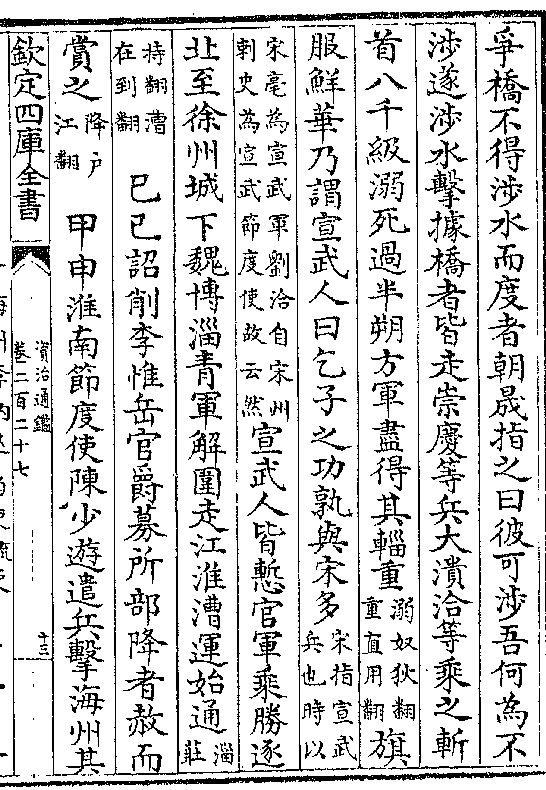 爭橋不得涉水而度者朝晟指之曰彼可涉吾何為不
涉遂涉水擊據橋者皆走崇慶等兵大潰洽等乘之斬
首八千級溺死過半朔方軍盡得其輜重溺奴狄翻重直用翻旗
服鮮華乃謂宣武人曰乞子之功孰與宋多宋指宣武兵也時以
宋亳為宣武軍劉洽自宋州刺史為宣武節度使故云然宣武人皆慙官軍乘勝逐
北至徐州城下魏博淄青軍解圍走江淮漕運始通淄莊
持翻漕在到翻 巳巳詔削李惟岳官爵募所部降者赦而
賞之降戸江翻 甲申淮南節度使陳少遊遣兵擊海州其
欽定四庫全書
資治通鑑
卷二百二十七
十三